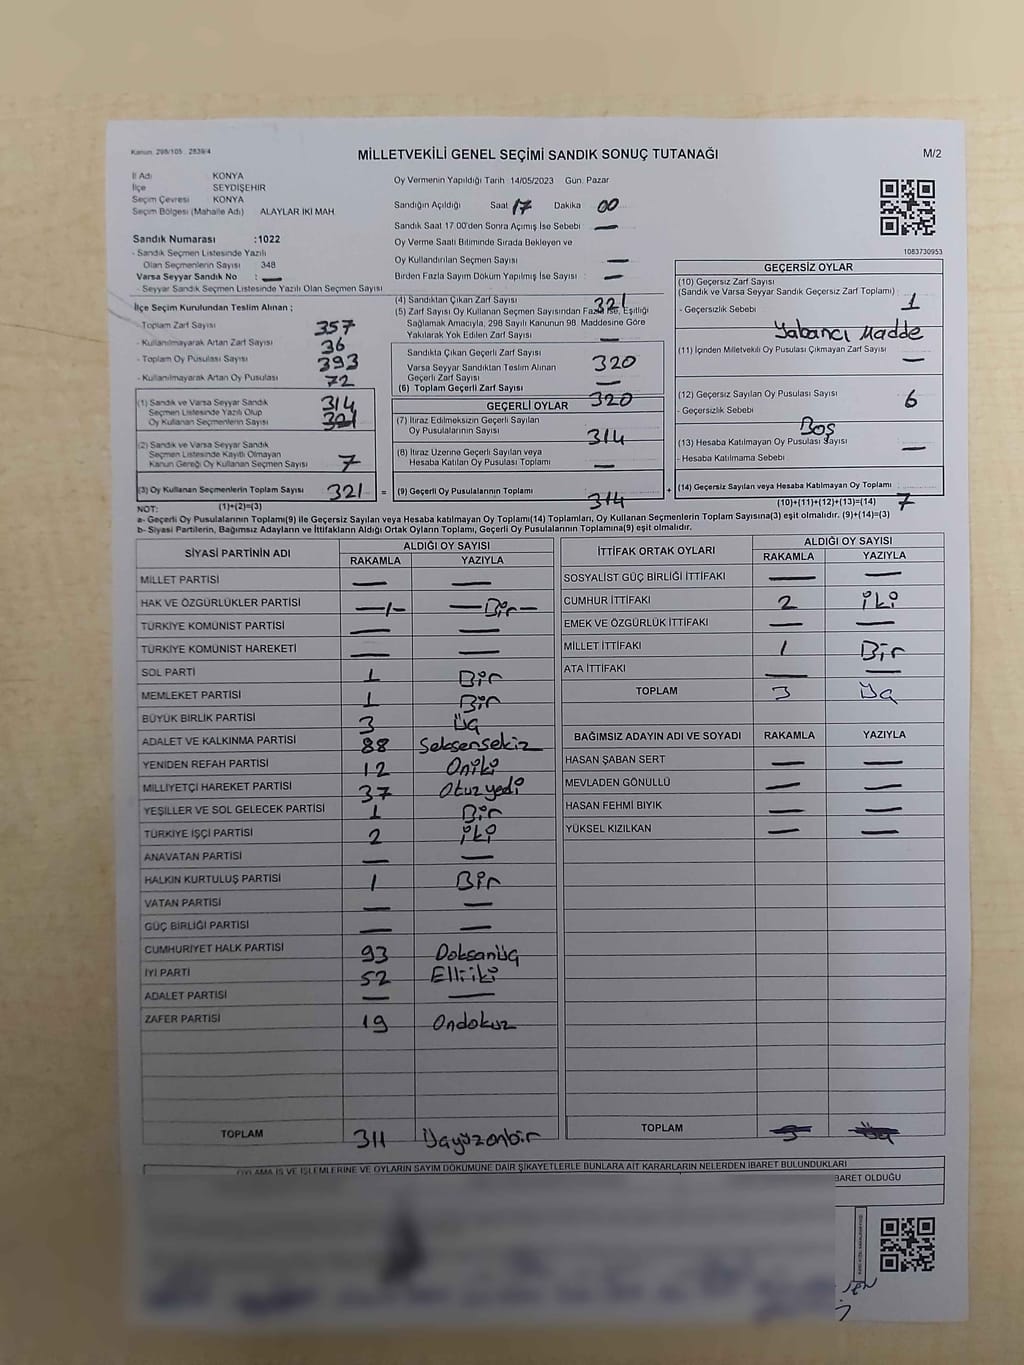 Kanun: 298/105 , 2839/4
MİLLETVEKİLİ GENEL SEÇİMİ SANDIK SONUÇ TUTANAĞI
M/2
İl Adı KONYA
İlçe SEYDİŞEHİR
Seçim Çevresi KONYA
Seçim Bölgesi (Mahalle Adı) ALAYLAR İKİ MAH
Sandık Numarası : 1022
- Sandık Seçmen Listesinde Yazılı
Olan Seçmenlerin Sayısı 348
Varsa Seyyar Sandık No : —
- Seyyar Sandık Seçmen Listesinde Yazılı Olan Seçmen Sayısı
Oy Vermenin Yapıldığı Tarih 14/05/2023 Gün: Pazar
Sandığın Açıldığı Saat 17 Dakika 00
Sandık Saat 17.00'den Sonra Açımış İse Sebebi —
Oy Verme Saati Bitiminde Sırada Bekleyen ve
Oy Kullandırılan Seçmen Sayısı —
Birden Fazla Sayım Döküm Yapılmış İse Sayısı —
1083730953
İlçe Seçim Kurulundan Teslim Alınan ;
- Toplam Zarf Sayısı 357
- Kullanılmayarak Artan Zarf Sayısı 36
- Toplam Oy Pusulası Sayısı 393
- Kullanılmayarak Artan Oy Pusulası 72
(1) Sandık ve Varsa Seyyar Sandık 314
Seçmen Listesinde Yazılı Olup
Oy Kullanan Seçmenlerin Sayısı
(2) Sandık ve Varsa Seyyar Sandık
Seçmen Listesinde Kayıtlı Olmayan
Kanun Gereği Oy Kullanan Seçmen Sayısı 7
(3) Oy Kullanan Seçmenlerin Toplam Sayısı 321 =
(1)+(2)=(3)
(4) Sandıktan Çıkan Zarf Sayısı 321
(5) Zarf Sayısı Oy Kullanan Seçmen Sayısından Fazla ise, Eşitliği
Sağlamak Amacıyla, 298 Sayılı Kanunun 98. Maddesine Göre
Yakılarak Yok Edilen Zarf Sayısı —
Sandıkta Çıkan Geçerli Zarf Sayısı 320
Varsa Seyyar Sandıktan Teslim Alınan
Geçerli Zarf Sayısı —
(6) Toplam Geçerli Zarf Sayısı 320
GEÇERLİ OYLAR
(7) İtiraz Edilmeksizin Geçerli Sayılan
Oy Pusulalarının Sayısı 314
(8) İtiraz Üzerine Geçerli Sayılan veya
Hesaba Katılan Oy Pusulası Toplamı —
(9) Geçerli Oy Pusulalarının Toplamı 314 +
GEÇERSİZ OYLAR
(10) Geçersiz Zarf Sayısı
(Sandık ve Varsa Seyyar Sandık Geçersiz Zarf Toplamı) : 1
- Geçersizlik Sebebi
Yabancı Madde
(11) İçinden Milletvekili Oy Pusulası Çıkmayan Zarf Sayısı —
(12) Geçersiz Sayılan Oy Pusulası Sayısı 6
- Geçersizlik Sebebi
Boş
(13) Hesaba Katılmayan Oy Pusulası Sayısı —
- Hesaba Katılmama Sebebi
(14) Geçersiz Sayılan veya Hesaba Katılmayan Oy Toplamı 7
(10)+(11)+(12)+(13)=(14)
NOT:
a- Geçerli Oy Pusulalarının Toplamı(9) ile Geçersiz Sayılan veya Hesaba katılmayan Oy Toplamı(14) Toplamları, Oy Kullanan Seçmenlerin Toplam Sayısına(3) eşit olmalıdır. (9)+(14)=(3)
b- Siyasi Partilerin, Bağımsız Adayların ve İttifakların Aldığı Ortak Oyların Toplamı, Geçerli Oy Pusulalarının Toplamına(9) eşit olmalıdır.
SİYASİ PARTİNİN ADI ALDIĞI OY SAYISI
RAKAMLA YAZIYLA
MİLLET PARTİSİ — —
HAK VE ÖZGÜRLÜKLER PARTİSİ —1— —Bir—
TÜRKİYE KOMÜNİST PARTİSİ — —
TÜRKİYE KOMÜNİST HAREKETİ — —
SOL PARTİ 1 Bir
MEMLEKET PARTİSİ 1 Bir
BÜYÜK BİRLİK PARTİSİ 3 Üç
ADALET VE KALKINMA PARTİSİ 88 Seksensekiz
YENİDEN REFAH PARTİSİ 12 Oniki
MİLLİYETÇİ HAREKET PARTİSİ 37 Otuzyedi
YEŞİLLER VE SOL GELECEK PARTİSİ 1 Bir
TÜRKİYE İŞÇİ PARTİSİ 2 iki
ANAVATAN PARTİSİ — —
HALKIN KURTULUŞ PARTİSİ 1 Bir
VATAN PARTİSİ — —
GÜÇ BİRLİĞİ PARTİSİ — —
CUMHURİYET HALK PARTİSİ 93 Doksanüç
İYİ PARTİ 52 Elliiki
ADALET PARTİSİ — —
ZAFER PARTİSİ 19 Ondokuz
TOPLAM 311 Üçyüzonbir
İTTİFAK ORTAK OYLARI ALDIĞI OY SAYISI
RAKAMLA YAZIYLA
SOSYALİST GÜÇ BİRLİĞİ İTTİFAKI — —
CUMHUR İTTİFAKI 2 iki
EMEK VE ÖZGÜRLÜK İTTİFAKI — —
MİLLET İTTİFAKI 1 Bir
ATA İTTİFAKI — —
TOPLAM 3 Üç
BAĞIMSIZ ADAYIN ADI VE SOYADI RAKAMLA YAZIYLA
HASAN ŞABAN SERT — —
MEVLADEN GÖNÜLLÜ — —
HASAN FEHMİ BIYIK — —
YÜKSEL KIZILKAN — —
TOPLAM
OYLAMA İŞ VE İŞLEMLERİNE VE OYLARIN SAYIM DÖKÜMÜNE DAİR ŞİKAYETLERLE BUNLARA AİT KARARLARIN NELERDEN İBARET BULUNDUKLARI
BARET OLDUĞU